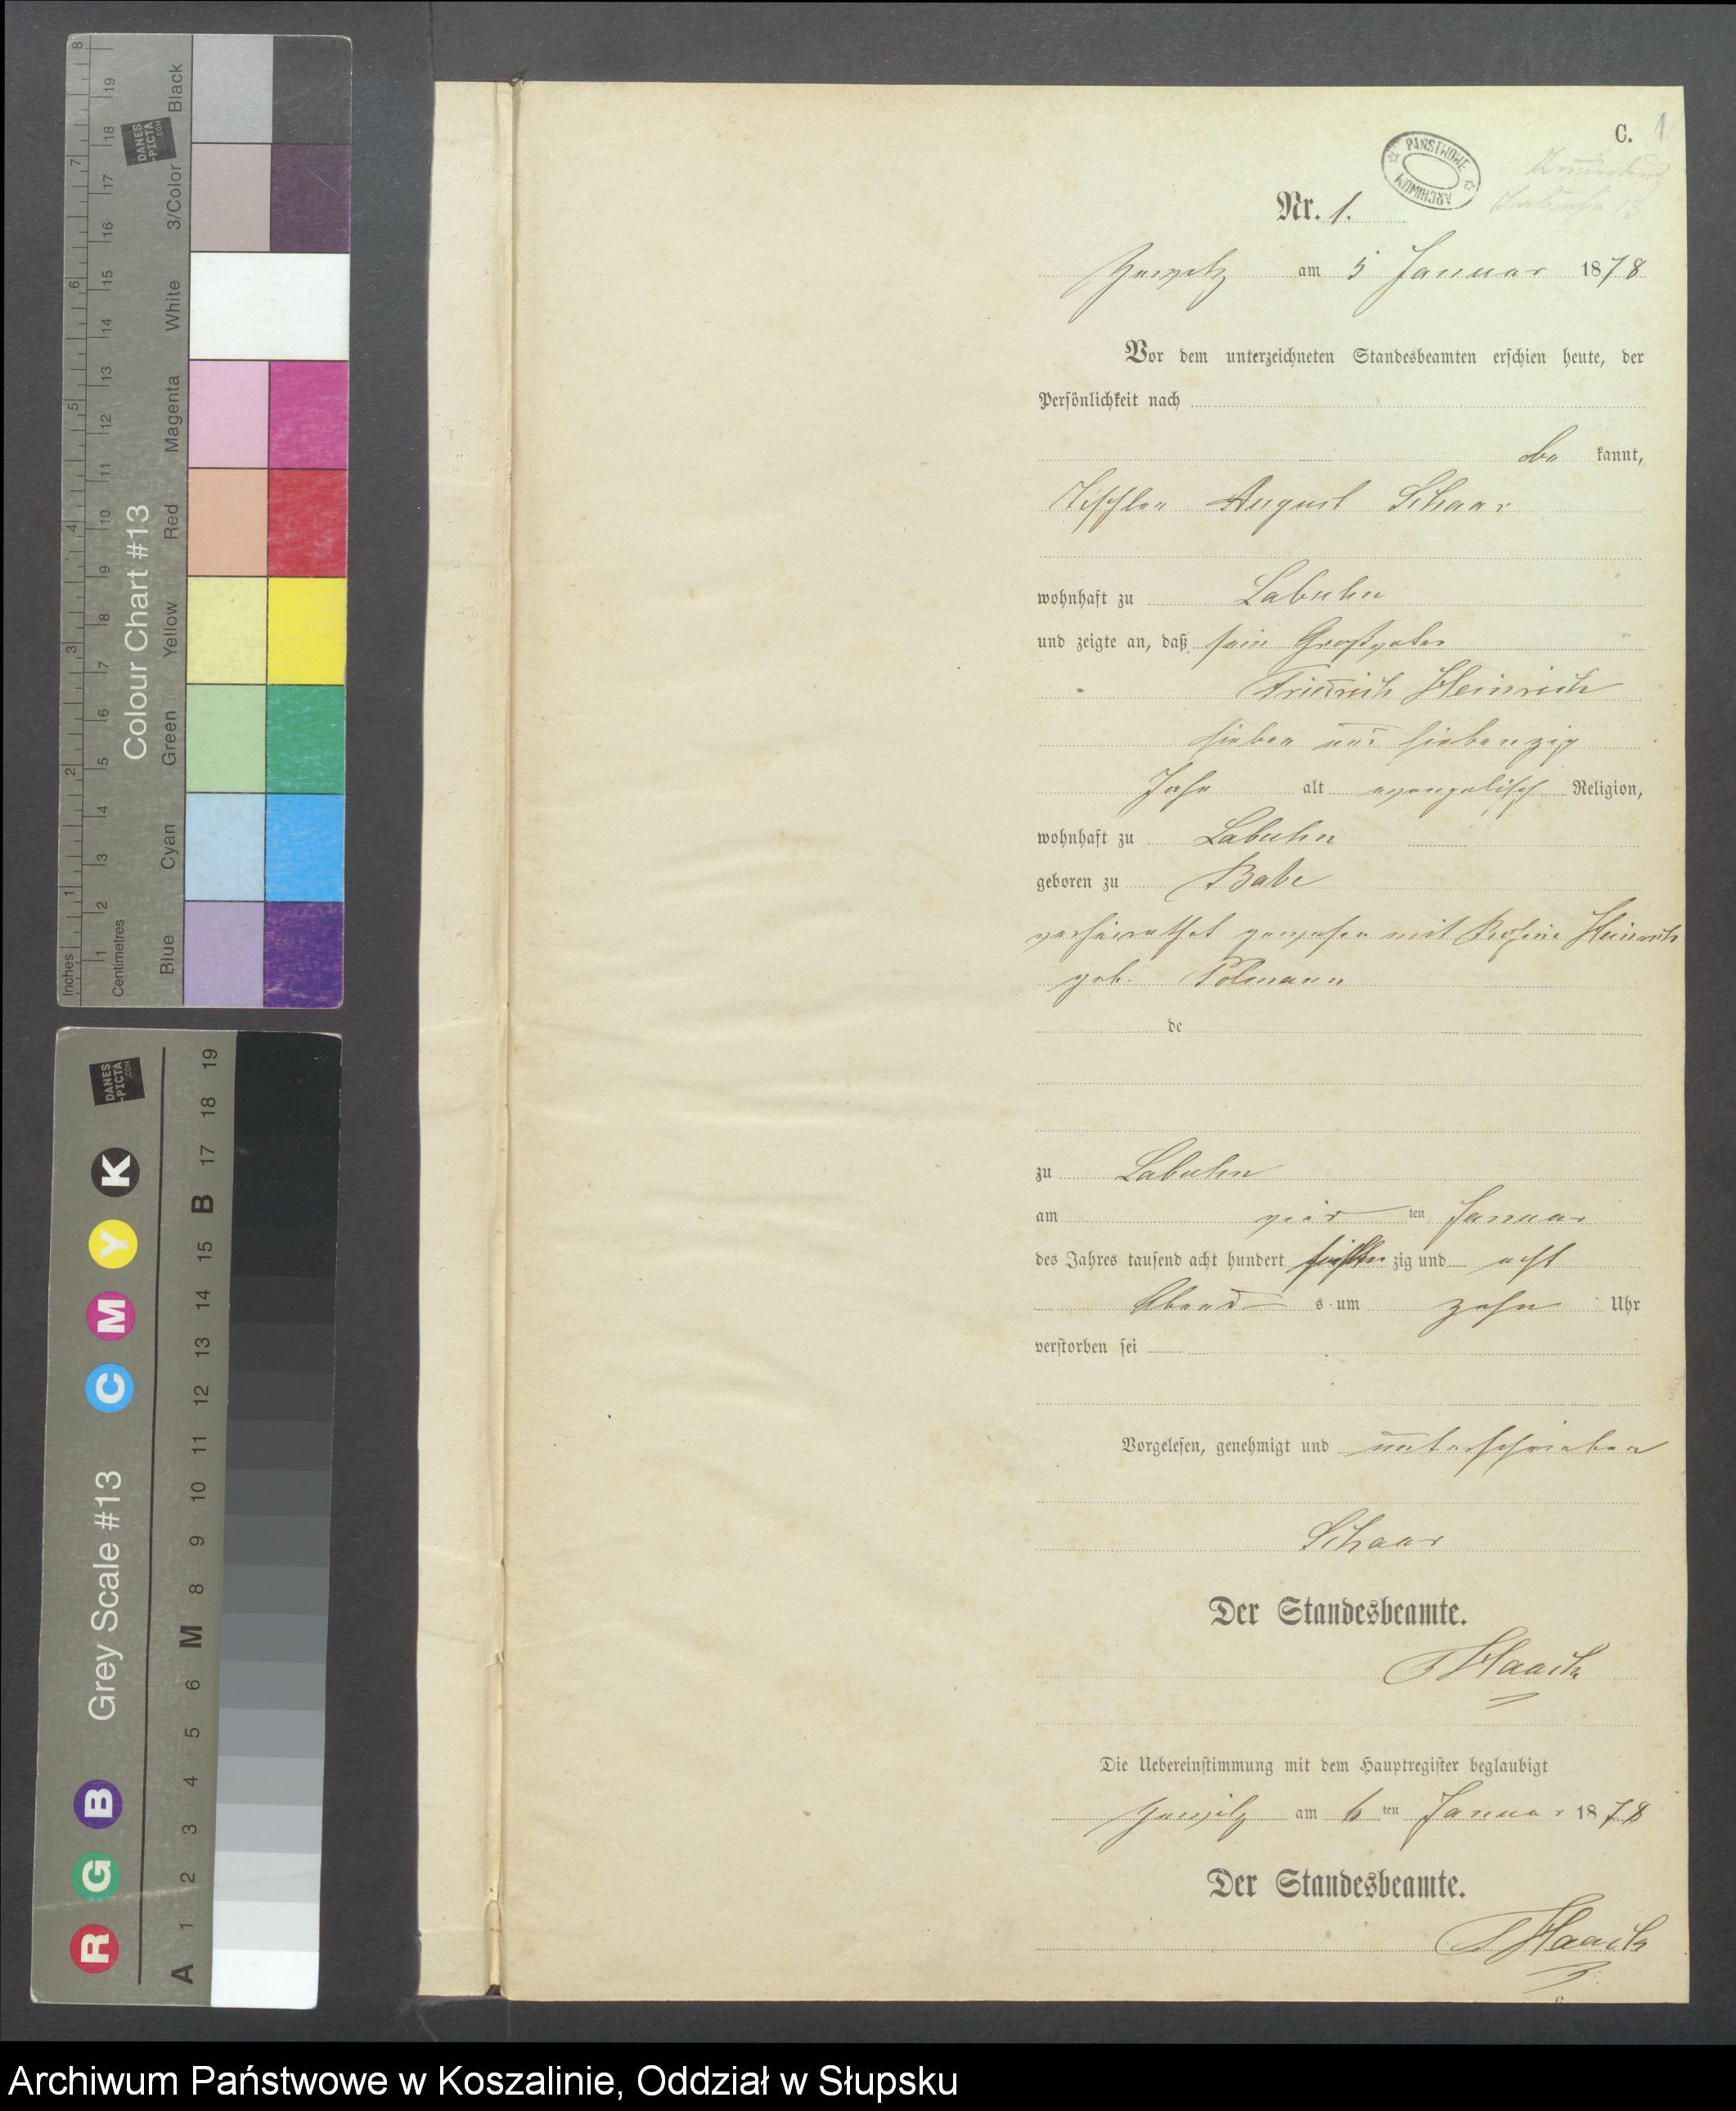 C. 1
PAŃSTWOWE ARCHIWUM
Nr. 1.
am 5 Januar 1878
Vor dem unterzeichneten Standesbeamten erschien heute, der
Persönlichkeit nach
be kannt,
Tischler August Schaar
wohnhaft zu Labuhn
und zeigte an, daß sein Großvater
Friedrich Heinrich
sieben und siebenzig
Jahr alt evangelisch Religion,
wohnhaft zu Labuhn
geboren zu Babe
verheirathet gewesen mit Rosine Heinrich
geb. Polmann
de
zu Labuhn
am vier ten Januar
des Jahres tausend acht hundert zig und acht
Abend s um zehn Uhr
verstorben sei
Vorgelesen, genehmigt und unterschrieben
Schaar
Der Standesbeamte.
Haack
Die Uebereinstimmung mit dem Hauptregister beglaubigt
am 6 ten Januar 1878
Der Standesbeamte.
Haack
Inches 1 2 3 4 5 6 7 8
Centimetres 1 2 3 4 5 6 7 8 9 10 11 12 13 14 15 16 17 18 19
DANES-PICTA.COM
Colour Chart #13
Blue Cyan Green Yellow Red Magenta White 3/Color Black
DANES-PICTA.COM
R G B Grey Scale #13 C M Y K
A 1 2 3 4 5 6 M 8 9 10 11 12 13 14 15 B 17 18 19
Archiwum Państwowe w Koszalinie, Oddział w Słupsku